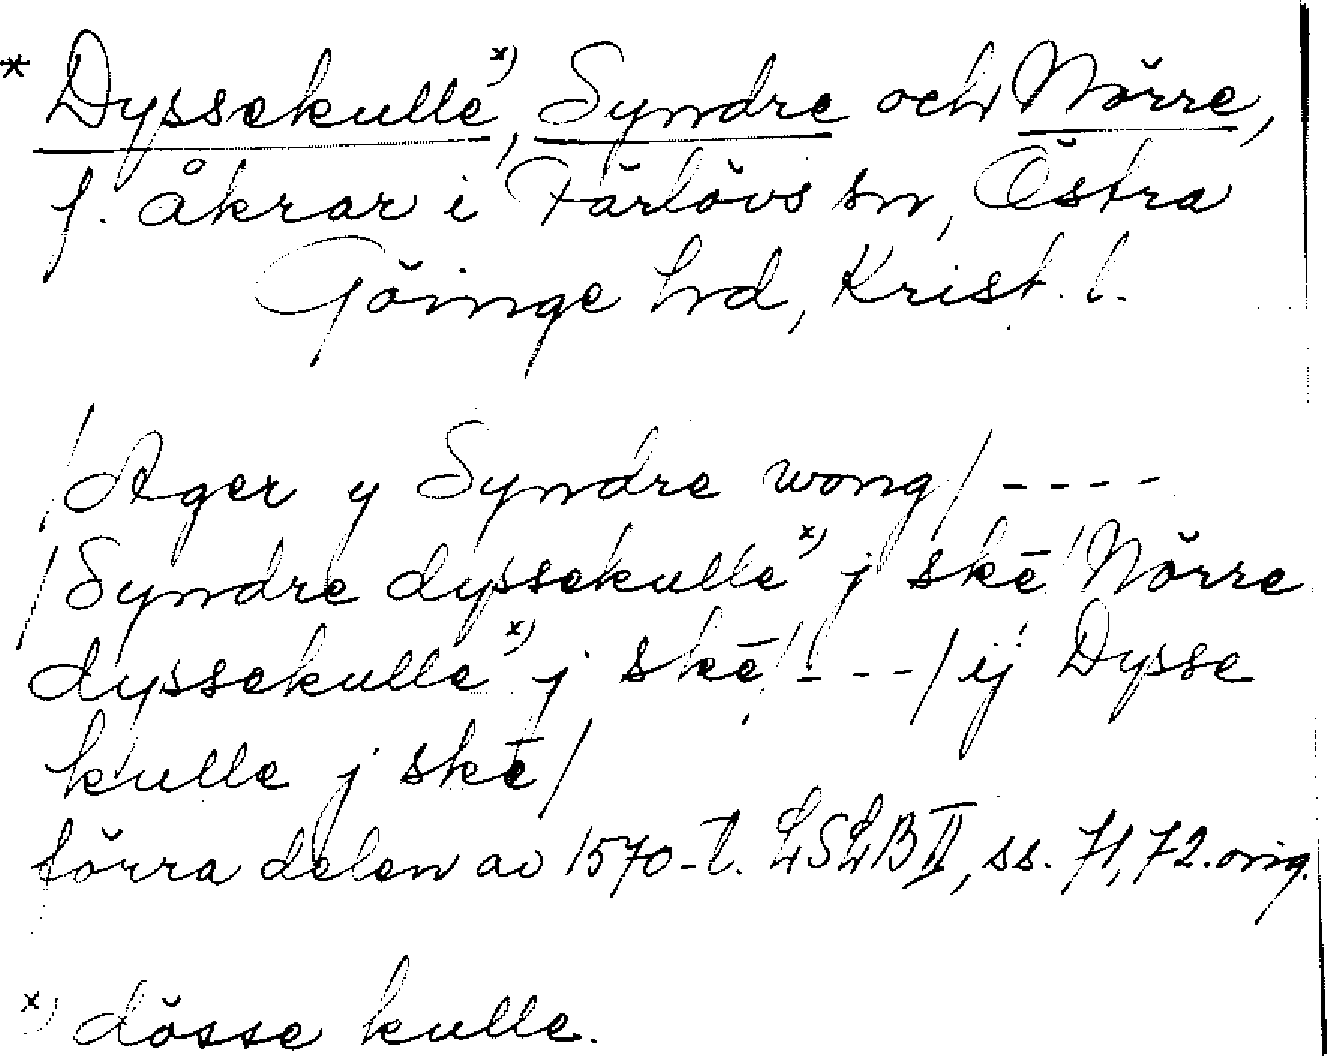 * Dyssekulle x), Syndre och Nörre,
f. åkrar i Färlövs sn, Östra
Göinge hd, Krist. l.
/Ager y Syndre wong/ - - - -
/Syndre dyssekulle x) j skē/ Nörre
dyssekulle x) j skē/ - - - / ij Dysse
kulle j skē/
förra delen av 1570-t. LSLB II, ss. 71, 72. orig.
x) dösse kulle.